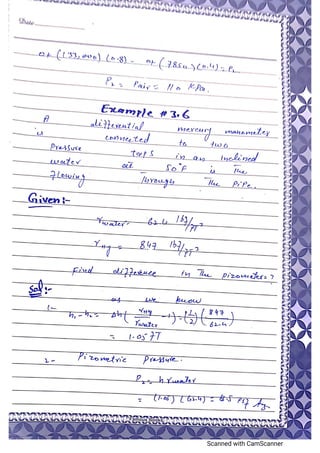 Date
0+ (133,000) (0.8) - 0+ (7850) (0.4) = P₂
P₂ = Pair = 110 KPa.
Example #3.6
A differential mercury manometer
is connected to two
Pressure taps in an inclined
water at 50°F is The
Flowing Through The Pipe.
Given:-
γwater = 62.4 lbf/FT³
γHg = 847 lbf/FT³
Find difference in The Pizometers?
Sol:-
as we know
1- h₁-h₂ = Δh ( γHg / γwater - 1) = ( / 2) ( 847 / 62.4 )
= 1.05 FT
2- Pizometric Pressure.
P₂ = h γwater
= (1.05) (62.4) =
Scanned with CamScanner